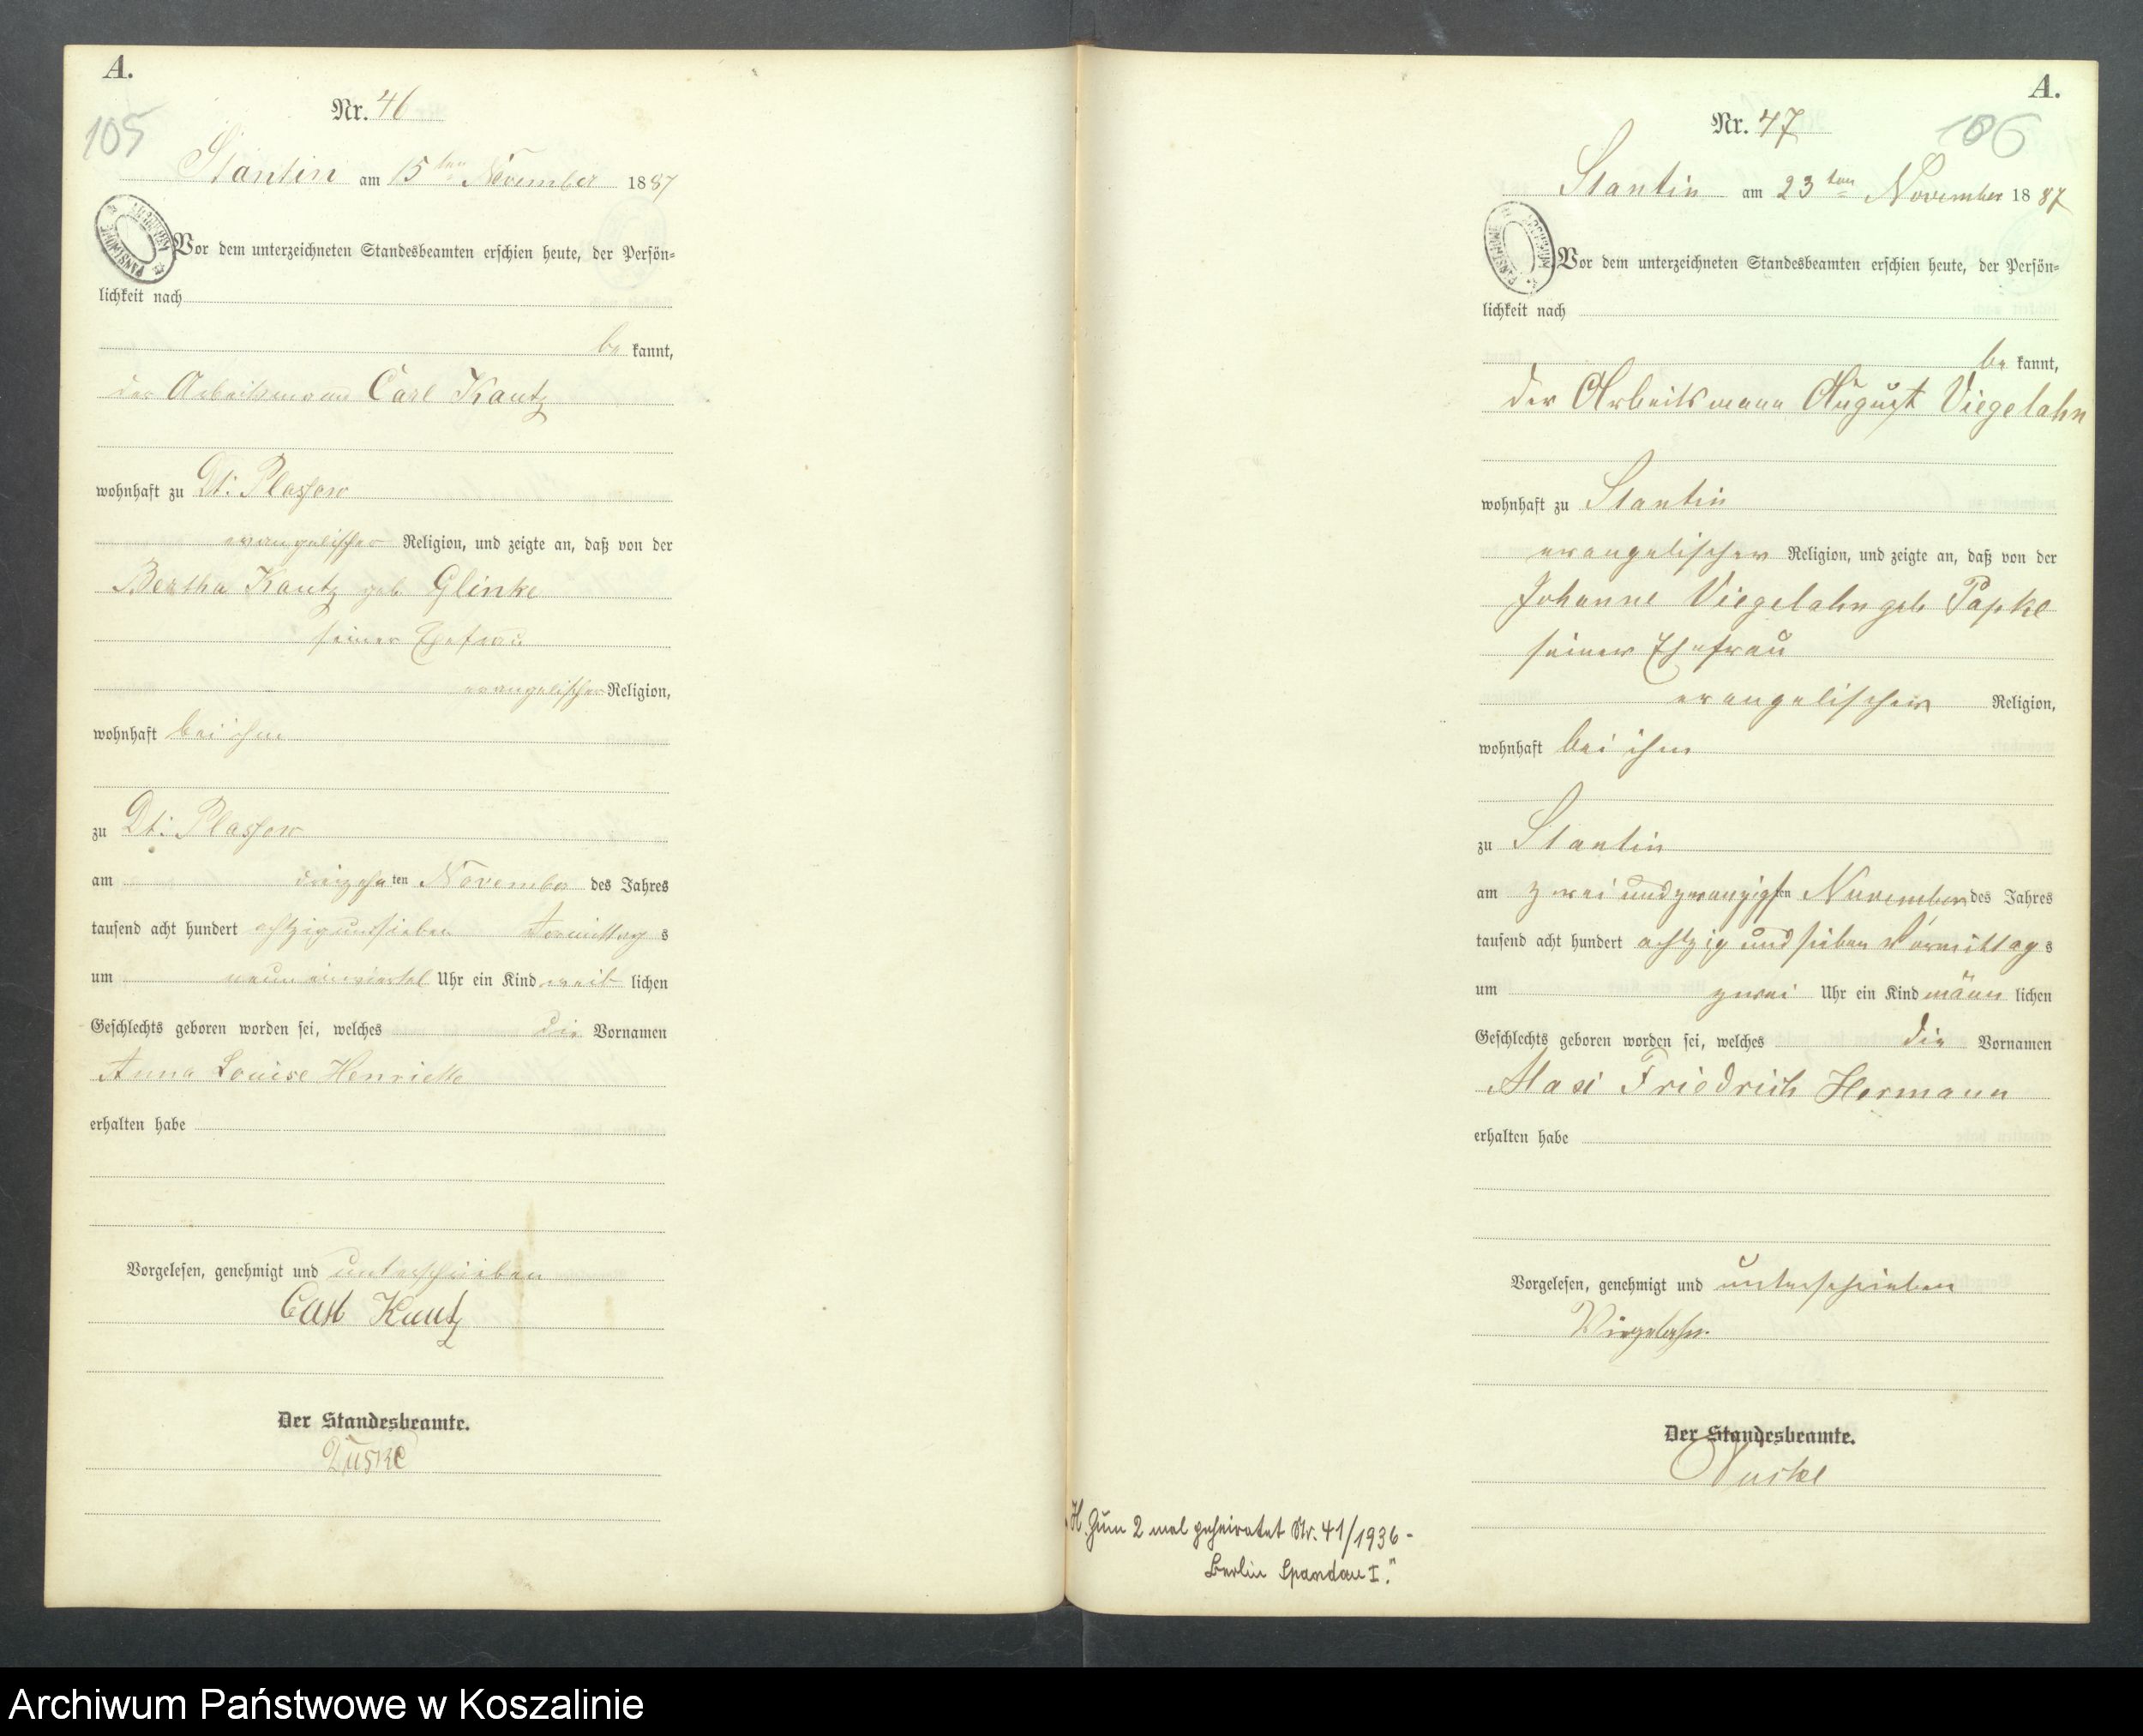 A.
105
Nr. 46
Stantin am 15ten November 1887
Vor dem unterzeichneten Standesbeamten erschien heute, der Persön=
lichkeit nach
be kannt,
der Arbeitsmann Carl Kautz
wohnhaft zu Dt: Plassow
evangelischer Religion, und zeigte an, daß von der
Bertha Kautz geb Glinke
seiner Ehefrau
evangelischer Religion,
wohnhaft bei ihm
zu Dt: Plassow
am dreizehn ten November des Jahres
tausend acht hundert achtzig und sieben Vormittag s
um neun einviertel Uhr ein Kind weib lichen
Geschlechts geboren worden sei, welches die Vornamen
Anna Louise Henriette
erhalten habe
Vorgelesen, genehmigt und unterschrieben
Carl Kautz
Der Standesbeamte.
A.
Nr. 47
106
Stantin am 23ten November 1887
Vor dem unterzeichneten Standesbeamten erschien heute, der Persön=
lichkeit nach
be kannt,
der Arbeitsmann August Viegelahn
wohnhaft zu Stantin
evangelischer Religion, und zeigte an, daß von der
Johanne Viegelahn geb Papke
seiner Ehefrau
evangelischer Religion,
wohnhaft bei ihm
zu Stantin
am zwei und zwanzigsten November des Jahres
tausend acht hundert achtzig und sieben Vormittag s
um zwei Uhr ein Kind männ lichen
Geschlechts geboren worden sei, welches die Vornamen
Max Friedrich Hermann
erhalten habe
Vorgelesen, genehmigt und unterschrieben
Viegelahn.
Der Standesbeamte.
H. Zum 2 mal geheiratet Nr. 41/1936 -
Berlin Spandau I."
Archiwum Państwowe w Koszalinie